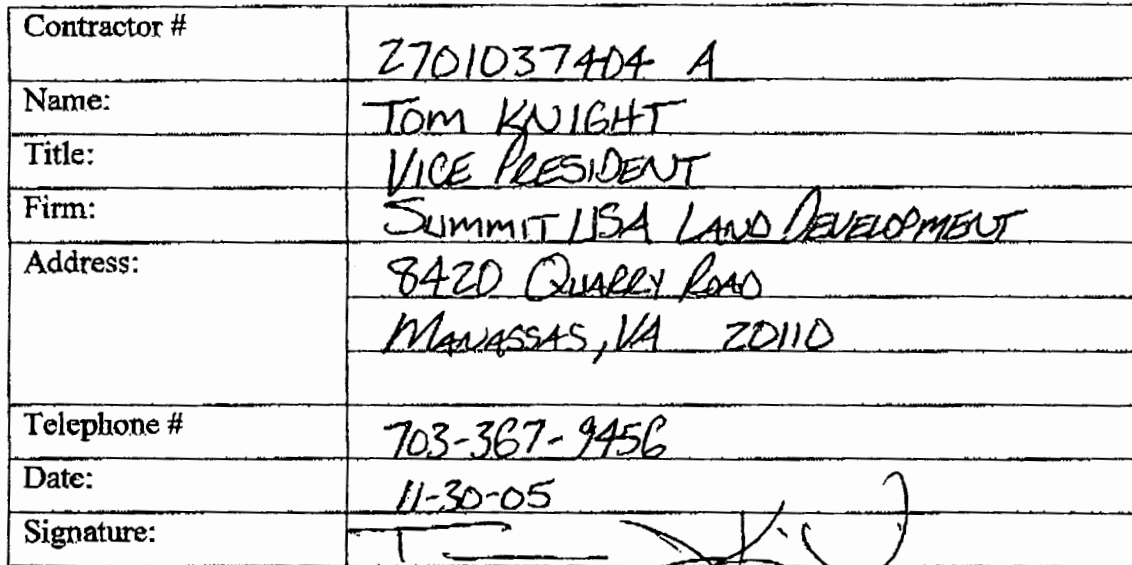 Contractor # 2701037404 A
Name: TOM KNIGHT
Title: VICE PRESIDENT
Firm: SUMMIT USA LAND DEVELOPMENT
Address: 8420 QUARRY ROAD
MANASSAS, VA 20110
Telephone # 703-367-9456
Date: 11-30-05
Signature: